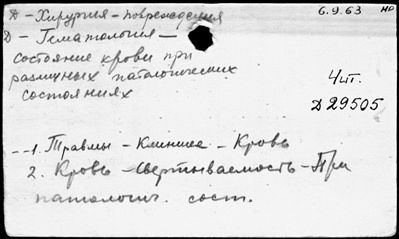 Д - Хирургия - повреждения
6.9.63 но
Д - Гематология -
состояние крови при
различных патологических
состояниях
4 шт.
Д 29505
1. Травмы - Клиника - Кровь
2. Кровь - Свертываемость - При
патологич. сост.